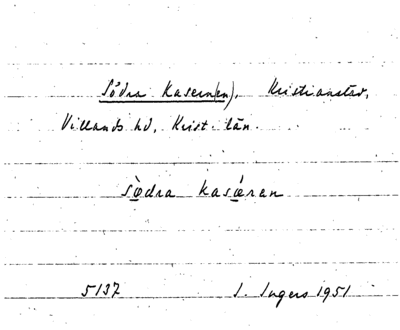 Södra Kasern(en). Kristianstad,
Villands hd, Krist. län.
sö̀dra kasǽren
5137 I. Ingers 1951